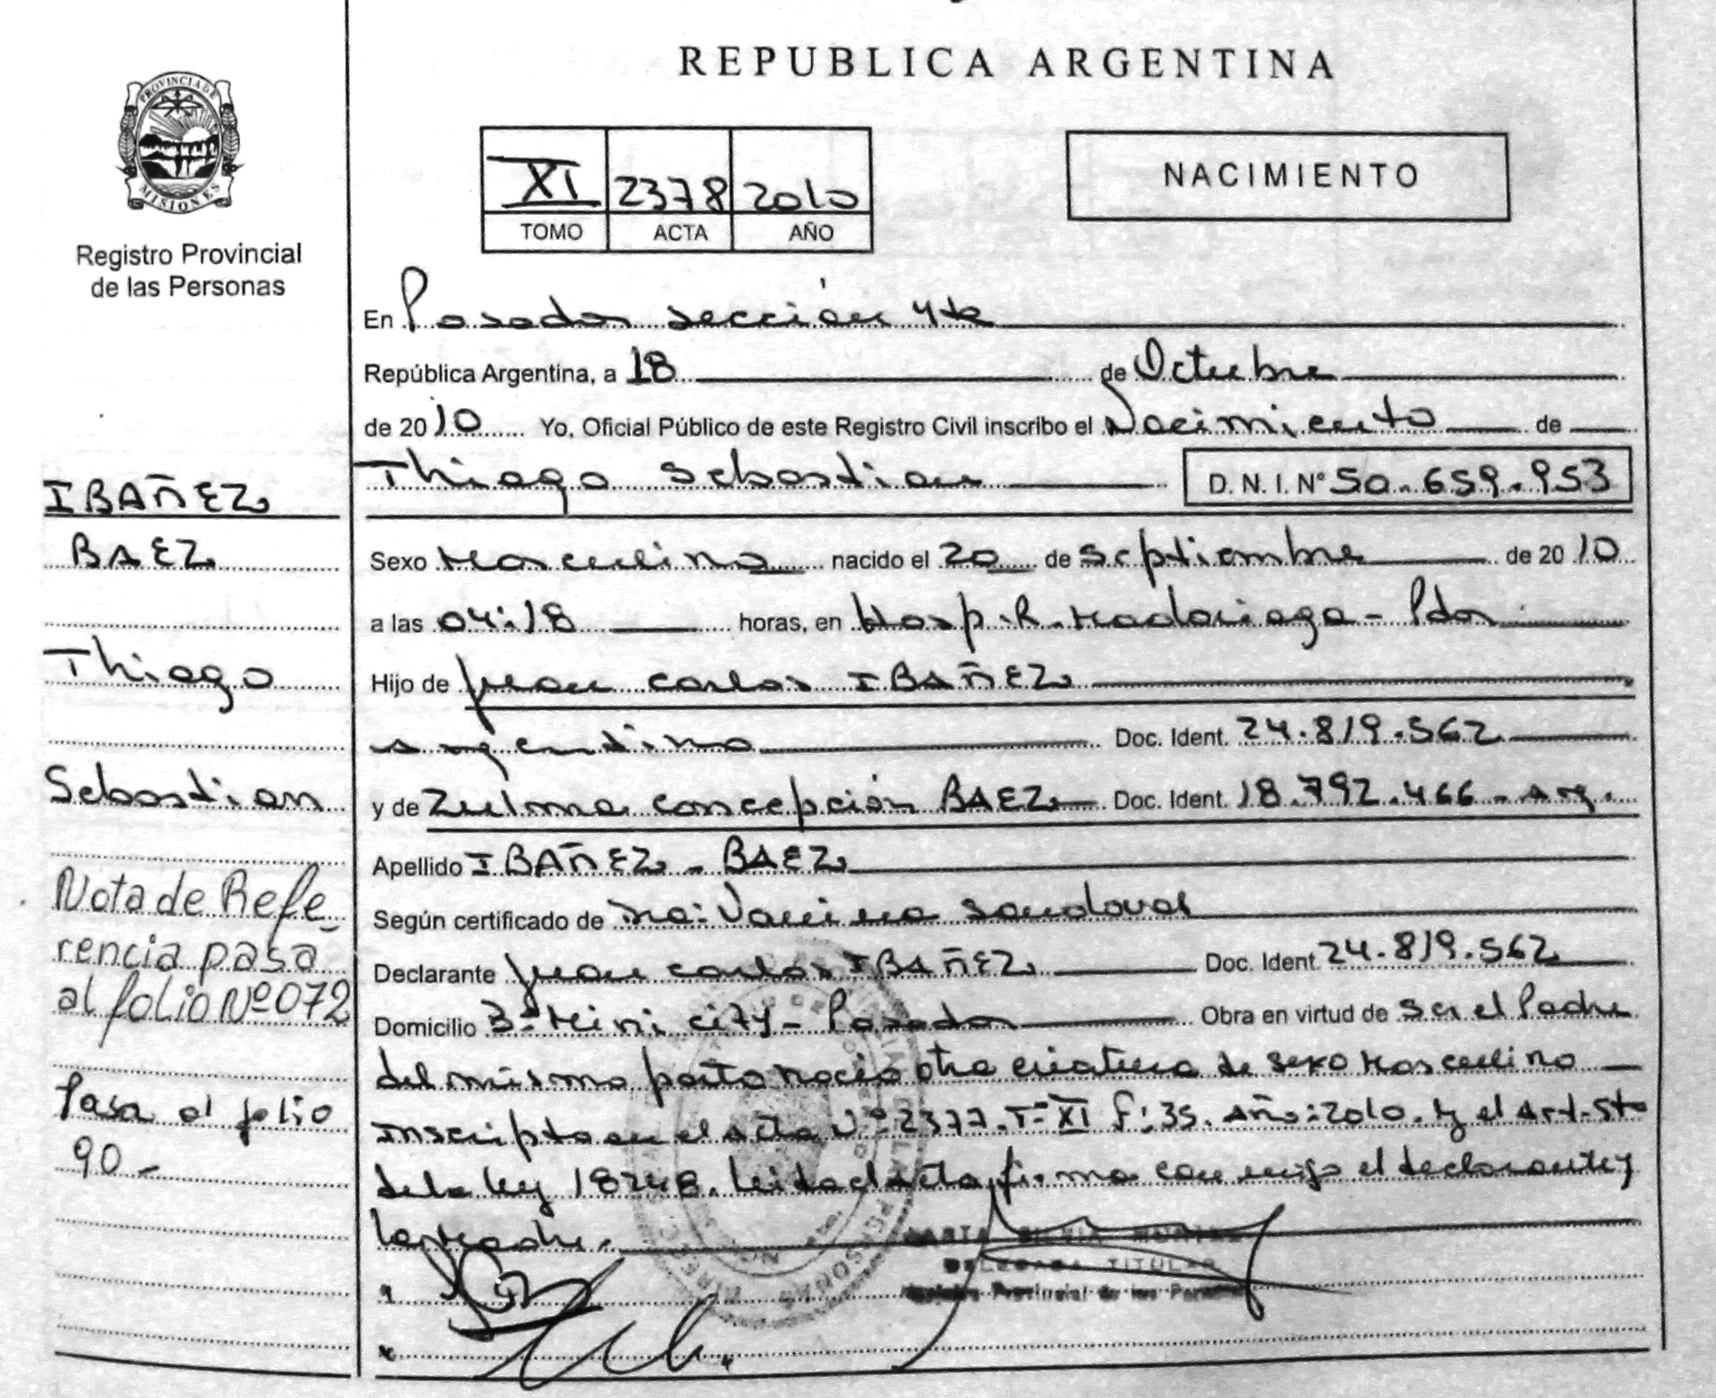 REPUBLICA ARGENTINA
PROVINCIA DE
MISIONES
Registro Provincial
de las Personas
XI 2378 2010
TOMO ACTA AÑO
NACIMIENTO
En Posadas Sección 4ta
República Argentina, a 18 de Octubre
de 2010 Yo, Oficial Público de este Registro Civil inscribo el Nacimiento de
Thiago Sebastian D. N. I. N° 50.659.953
Sexo Masculino nacido el 20 de Septiembre de 2010
a las 04:18 horas, en Hosp. R. Madariaga - Pdas
Hijo de Juan Carlos IBAÑEZ
argentino Doc. Ident. 24.819.562
y de Zulma Concepción BAEZ Doc. Ident. 18.792.466 - Arg.
Apellido IBAÑEZ - BAEZ
Según certificado de Dra: Vanina Sandoval
Declarante Juan Carlos IBAÑEZ Doc. Ident. 24.819.562
Domicilio B° Mini City - Posadas Obra en virtud de Ser el Padre
del mismo parto nació otra criatura de sexo Masculino
inscripto en el acta N°: 2377. T° XI F: 35. Año: 2010. Y el Art. 5to
de la ley 18248. Leida el Acta firma conmigo el declarante y
la Madre.
DELEGADA TITULAR
Registro Provincial de las Personas
IBAÑEZ
BAEZ
Thiago
Sebastian
Nota de Refe-
rencia pasa
al folio Nº 072
Pasa al folio
90-